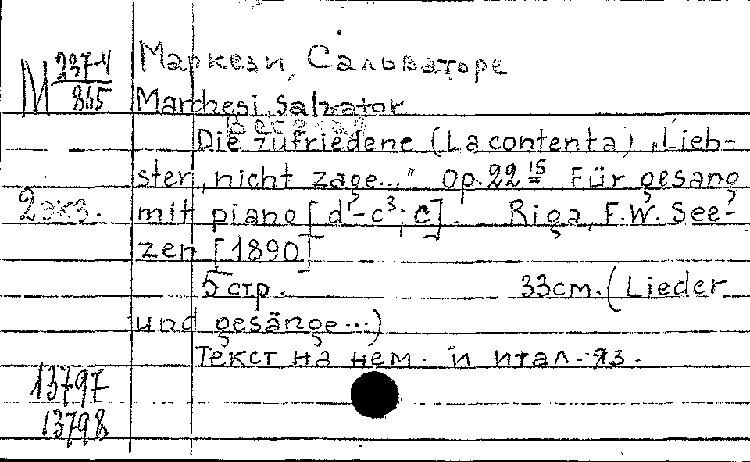 М 237-4/865
Маркези, Сальваторе
Marchesi, Salvator
Die zufriedene (La contenta) „Lieb-
ster, nicht zage..." Op. 22 15 Für gesang
2 экз. mit piano [d'-c³; c]. Riga, F.W. See-
zen [1890]
5 стр. 33 cm. (Lieder
und gesänge...)
Текст на нем. и итал. яз.
13797
13798